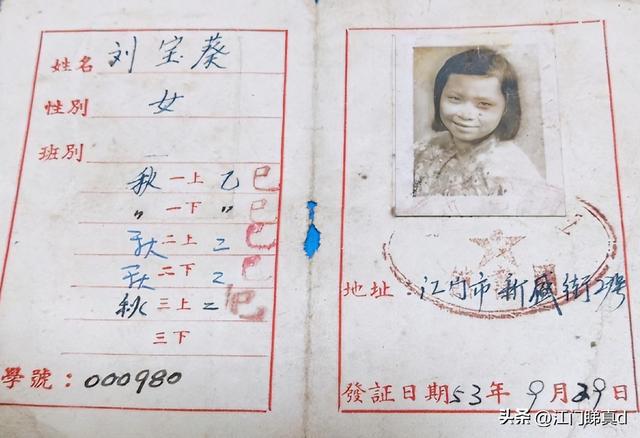 姓名 刘宝葵
性別 女
班別
秋 一上 乙 已
〃 一下 〃 已
秋 二上 乙 已
秋 二下 乙 已
秋 三上 乙 已
三下
學號：000980
地址：江门市新盛街2號
發証日期53年9月29日
头条 @江门睇真d